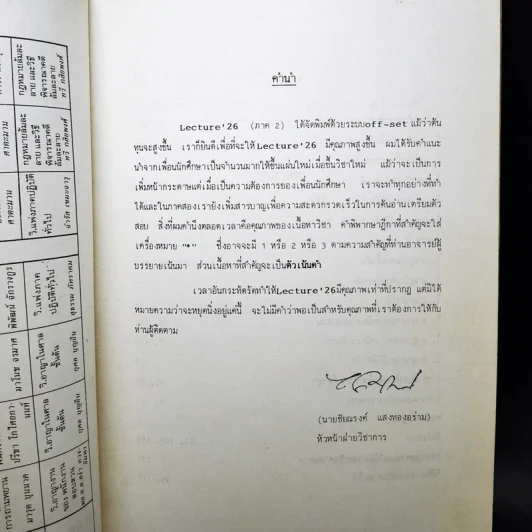 คำนำ
Lecture'26 (ภาค 2) ได้จัดพิมพ์ด้วยระบบoff-set แม้ว่าต้น
ทุนจะสูงขึ้น เราก็ยินดีเพื่อที่จะให้ Lecture'26 มีคุณภาพสูงขึ้น ผมได้รับคำแนะ
นำจากเพื่อนนักศึกษาเป็นจำนวนมากให้ขึ้นแผ่นใหม่เมื่อขึ้นวิชาใหม่ แม้ว่าจะเป็นการ
เพิ่มหน้ากระดาษแต่เมื่อเป็นความต้องการของเพื่อนนักศึกษา เราจะทำทุกอย่างที่ทำ
ได้และในภาคสองเรายังเพิ่มสารบาญเพื่อความสะดวกรวดเร็วในการค้นอ่านเตรียมตัว
สอบ สิ่งที่ผมคำนึงตลอดเวลาคือคุณภาพของเนื้อหาวิชา คำพิพากษาฎีกาที่สำคัญจะใส่
เครื่องหมาย "*" ซึ่งอาจจะมี 1 หรือ 2 หรือ 3 ตามความสำคัญที่ท่านอาจารย์ผู้
บรรยายเน้นมา ส่วนเนื้อหาที่สำคัญจะเป็นตัวเน้นดำ
เวลาอันกระทัดรัดทำให้Lecture'26มีคุณภาพเท่าที่ปรากฏ แต่มิได้
หมายความว่าจะหยุดนิ่งอยู่แค่นี้ จะไม่มีคำว่าพอเป็นสำหรับคุณภาพที่เราต้องการให้กับ
ท่านผู้ติดตาม
(นายชัยณรงค์ แสงทองอร่าม)
หัวหน้าฝ่ายวิชาการ
กฎหมายล้มละ
ลาย และวิธี
พิจารณาคดี
ล้มละลาย
วิ.แพ่งภาคปฏิบัติ
ทั่วไป
วิ.แพ่งภาค
ปฏิบัติทั่วไป
วิ.อาญาในศาล
ชั้นต้น
วิ.อาญาในศาล
ชั้นต้น